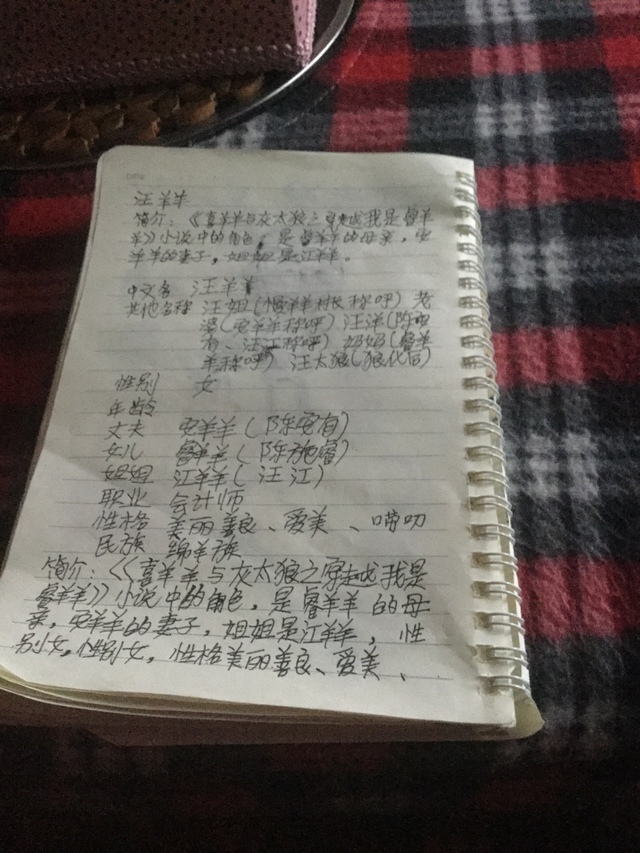 汪羊羊
简介：《喜羊羊与灰太狼之穿越我是睿羊
羊》小说中的角色，是睿羊羊的母亲，宝
羊羊的妻子，姐姐是江羊羊。
中文名 汪羊羊
其他名称 汪姐（慢羊羊村长称呼）老
婆（宝羊羊称呼）汪洋（陈宝
有、汪江称呼）妈妈（睿羊
羊称呼）汪太狼（狼代后）
性别 女
年龄
丈夫 宝羊羊（陈宝有）
女儿 睿羊羊（陈施睿）
姐姐 江羊羊（汪江）
职业 会计师
性格 美丽善良、爱美、唠叨
民族 绵羊族
简介：《《喜羊羊与灰太狼之穿越我是
睿羊羊》》小说中的角色，是睿羊羊的母
亲，宝羊羊的妻子，姐姐是江羊羊，性
别女，性别女，性格美丽善良、爱美、